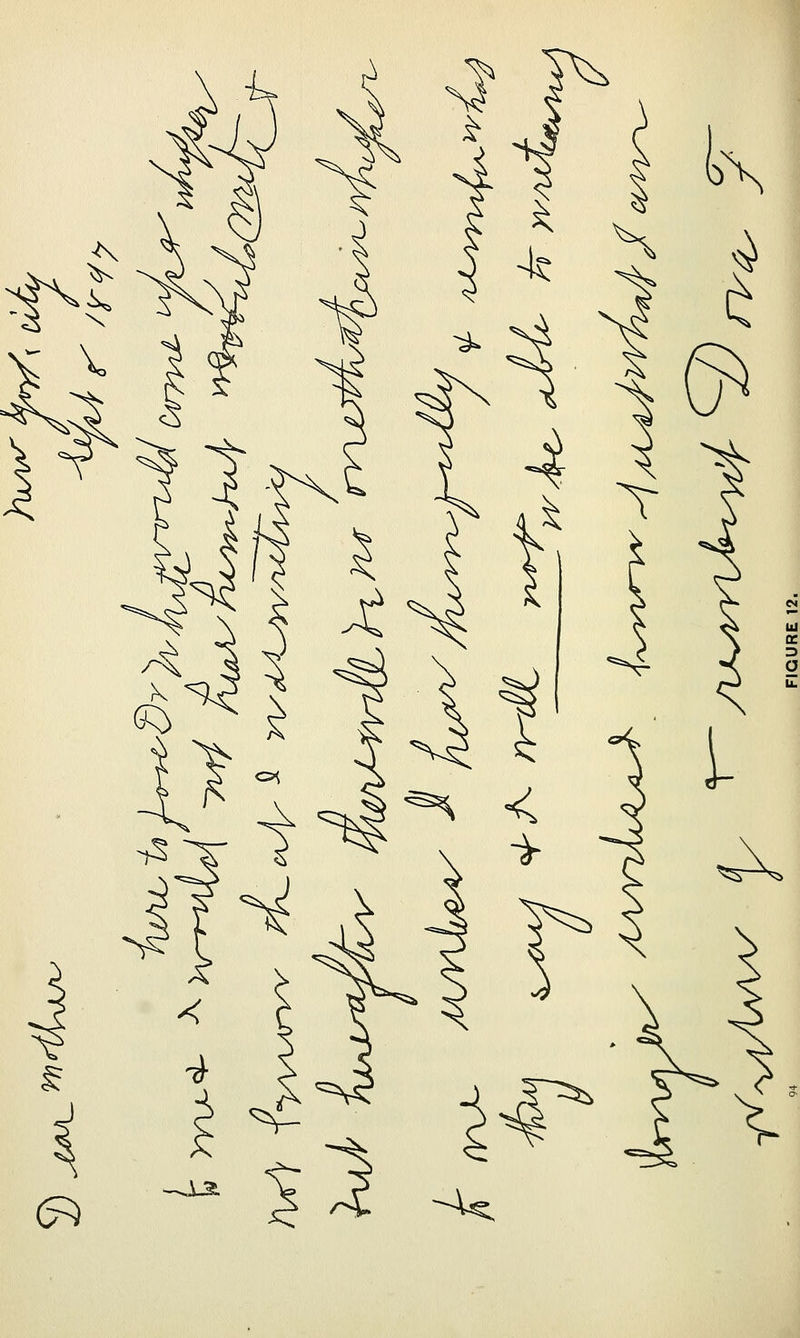 new York city
Sept 8 1897
Dear mother
here tofore Dr White would come up & whisper
to me & I would not hear him but would write &
not know that I was writing
but hereafter there will be no one that can whisper
to me unless I hear them fully & rember what
they say & I will not be able to write any
longer unless I know just what I am
& rember it Dora F
FIGURE 12.
94